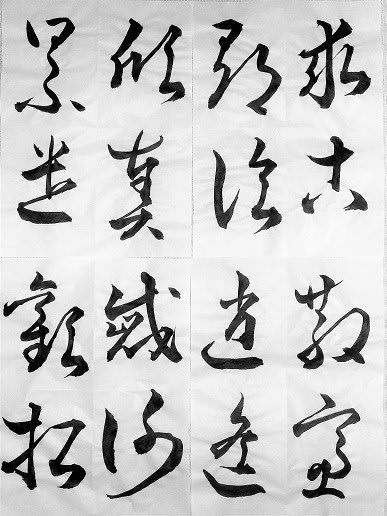 求古
尋論
散慮
逍遙
欣奏
累遣
慼謝
歡招